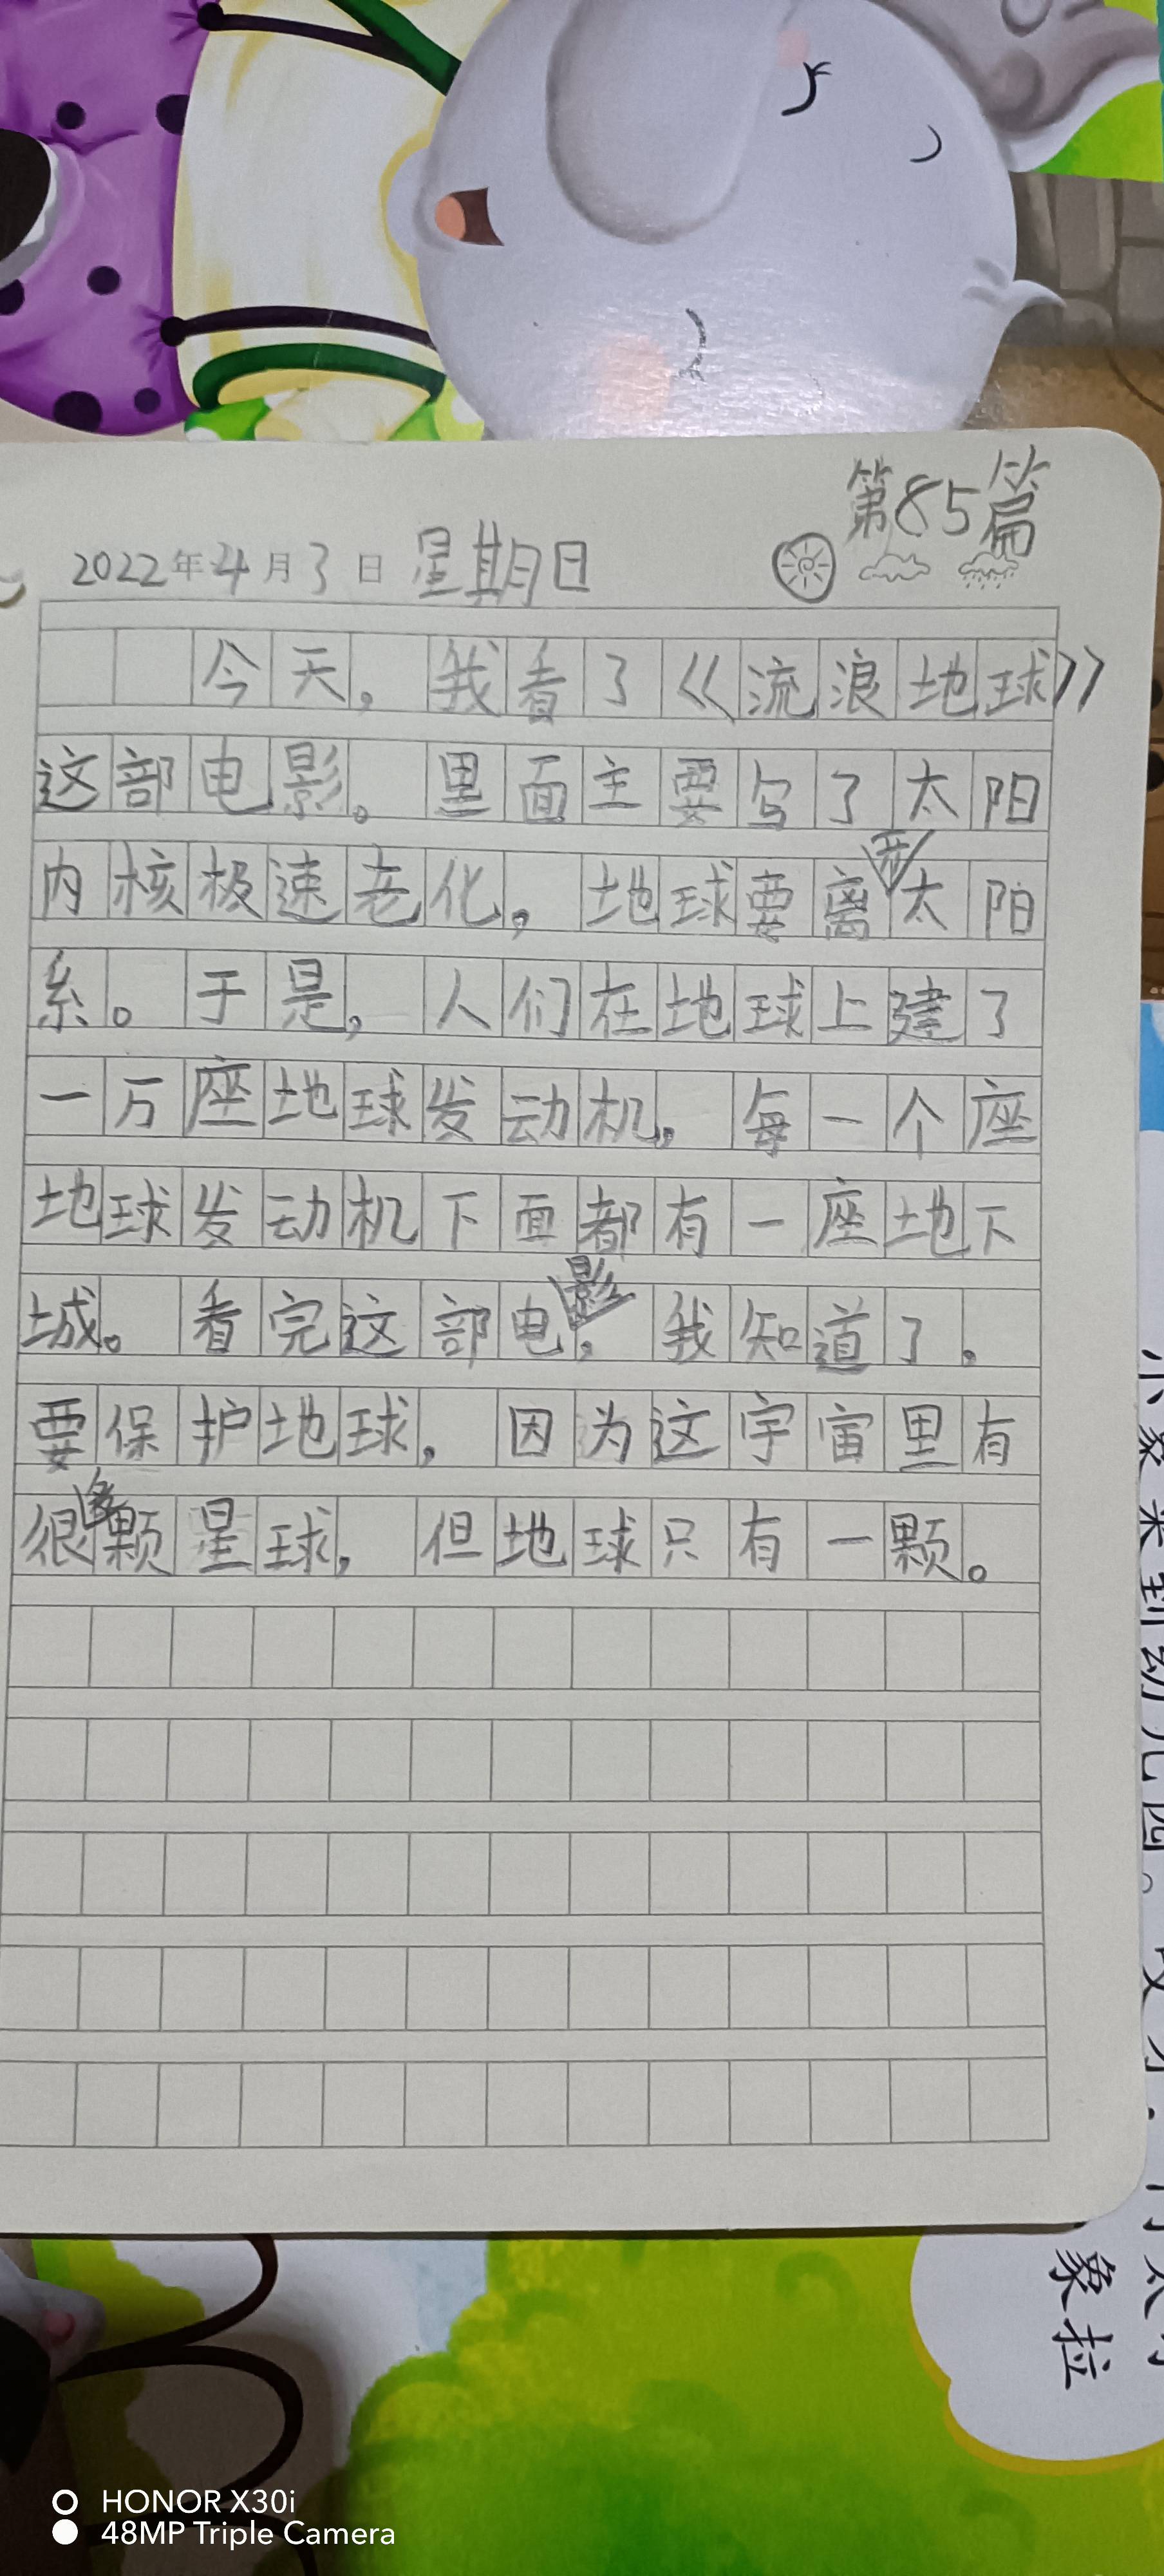 第85篇
2022年4月3日 星期日
今天，我看了《流浪地球》
这部电影。里面主要写了太阳
内核极速老化，地球要离开太阳
系。于是，人们在地球上建了
一万座地球发动机，每一个座
地球发动机下面都有一座地下
城。看完这部电影，我知道了，
要保护地球，因为这宇宙里有
很多颗星球，但地球只有一颗。
小象来到幼儿园。
象拉
HONOR X30i
48MP Triple Camera